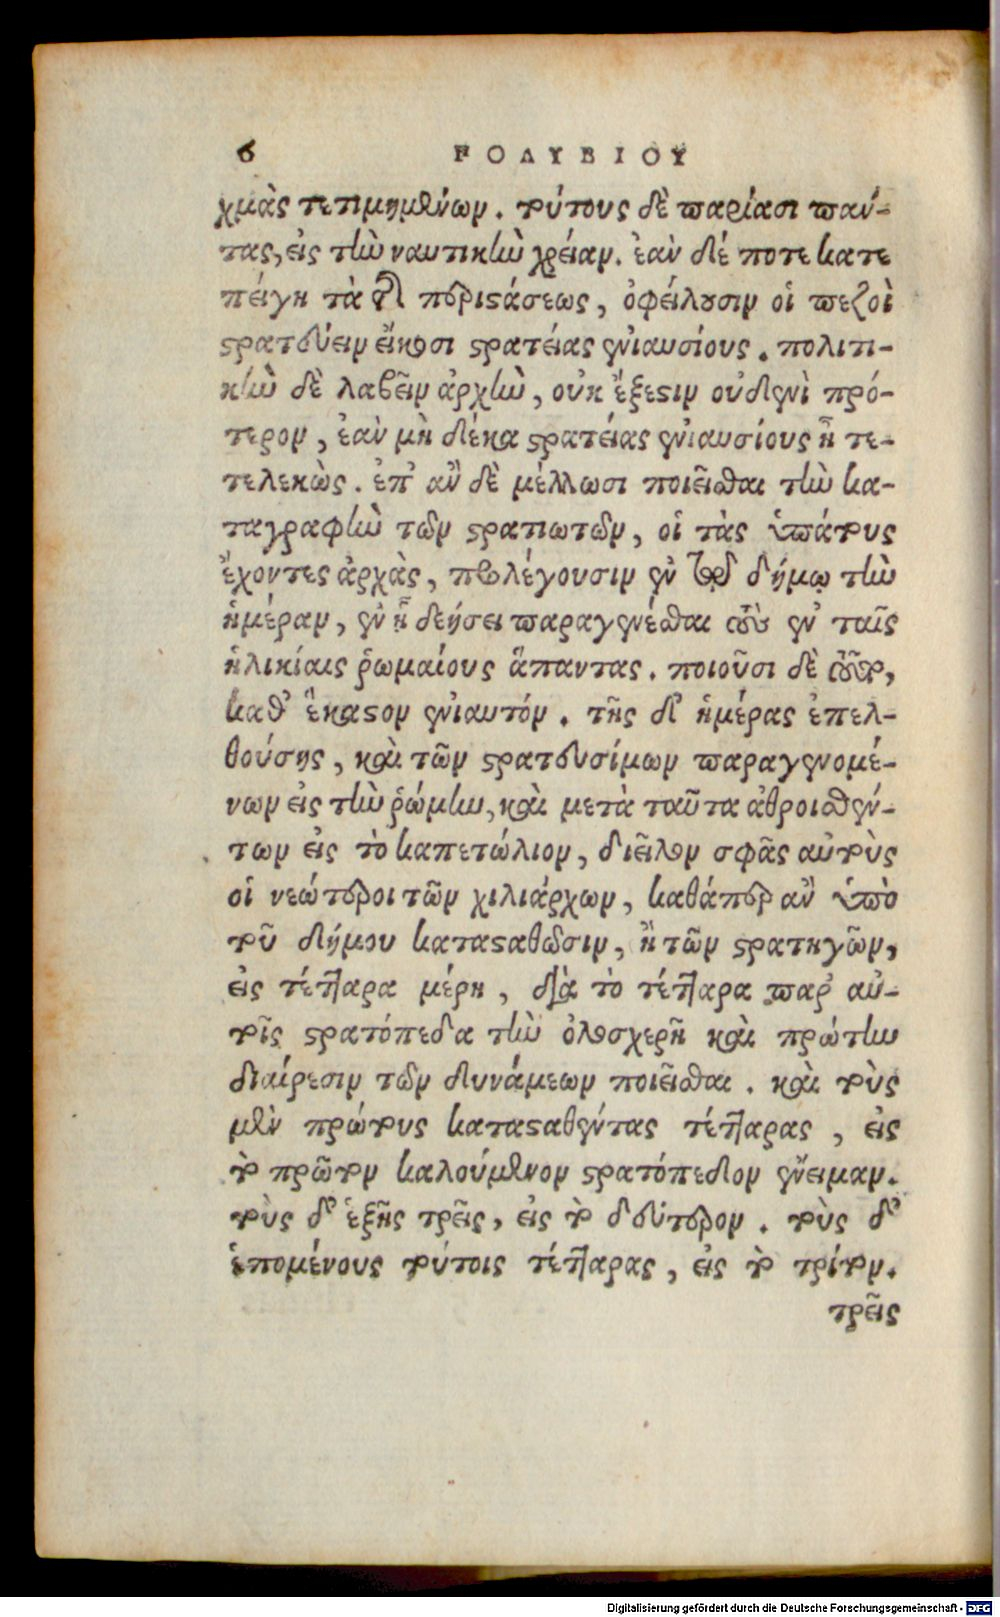 6 ΠΟΛΥΒΙΟΥ
χμὰς τετιμημένων. τούτους δὲ παριᾶσι πάν-
τας, εἰς τὴν ναυτικὴν χρείαν. ἐὰν δέ ποτε κατε
πείγη τὰ τῆς περιστάσεως, ὀφείλουσιν οἱ πεζοὶ
στρατεύειν εἴκοσι στρατείας ἐνιαυσίους. πολιτι-
κὴν δὲ λαβεῖν ἀρχὴν, οὐκ ἔξεστιν οὐδενὶ πρό-
τερον, ἐὰν μὴ δέκα στρατείας ἐνιαυσίους ᾖ τε-
τελεκὼς. ἐπ' ἂν δὲ μέλλωσι ποιεῖσθαι τὴν κα-
ταγραφὴν τῶν στρατιωτῶν, οἱ τὰς ὑπάτους
ἔχοντες ἀρχὰς, προλέγουσιν ἐν τῷ δήμῳ τὴν
ἡμέραν, ἐν ᾗ δεήσει παραγενέσθαι τοὺς ἐν ταῖς
ἡλικίαις ῥωμαίους ἅπαντας. ποιοῦσι δὲ τοῦτο,
καθ' ἕκαστον ἐνιαυτόν. τῆς δ' ἡμέρας ἐπελ-
θούσης, καὶ τῶν στρατευσίμων παραγενομέ-
νων εἰς τὴν ῥώμην, καὶ μετὰ ταῦτα ἀθροισθέν-
των εἰς τὸ καπετώλιον, διεῖλον σφᾶς αὐτοὺς
οἱ νεώτεροι τῶν χιλιάρχων, καθάπερ ἂν ὑπὸ
τοῦ δήμου κατασταθῶσιν, ἢ τῶν στρατηγῶν,
εἰς τέτταρα μέρη, διὰ τὸ τέτταρα παρ' αὐ-
τοῖς στρατόπεδα τὴν ὁλοσχερῆ καὶ πρώτην
διαίρεσιν τῶν δυνάμεων ποιεῖσθαι. καὶ τοὺς
μὲν πρώτους κατασταθέντας τέτταρας, εἰς
τὸ πρῶτον καλούμενον στρατόπεδον ἔνειμαν.
τοὺς δ' ἑξῆς τρεῖς, εἰς τὸ δεύτερον. τοὺς δ'
ἑπομένους τούτοις τέτταρας, εἰς τὸ τρίτον.
τρεῖς
Digitalisierung gefördert durch die Deutsche Forschungsgemeinschaft - DFG